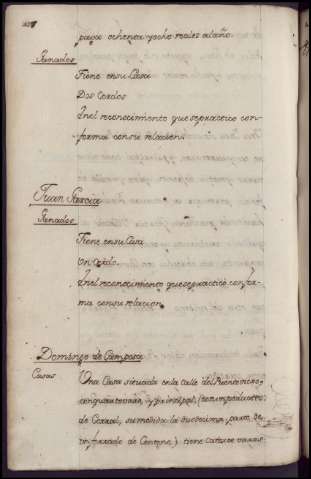 paga ochenta y ocho reales al año.
Ganados
Tiene en su Casa
Dos Cerdos
En el reconocimiento que se practicó con-
forma con su relacion.
Juan Garcia
Ganados
Tiene en su Casa
Un Cerdo.
En el reconocimiento que se practicó confor-
ma con su relacion
Domingo de
Casas
Una Casa situada en la Calle del
con quarto vajo, y principal,
de Corral, su medida la
tiene catorce varas